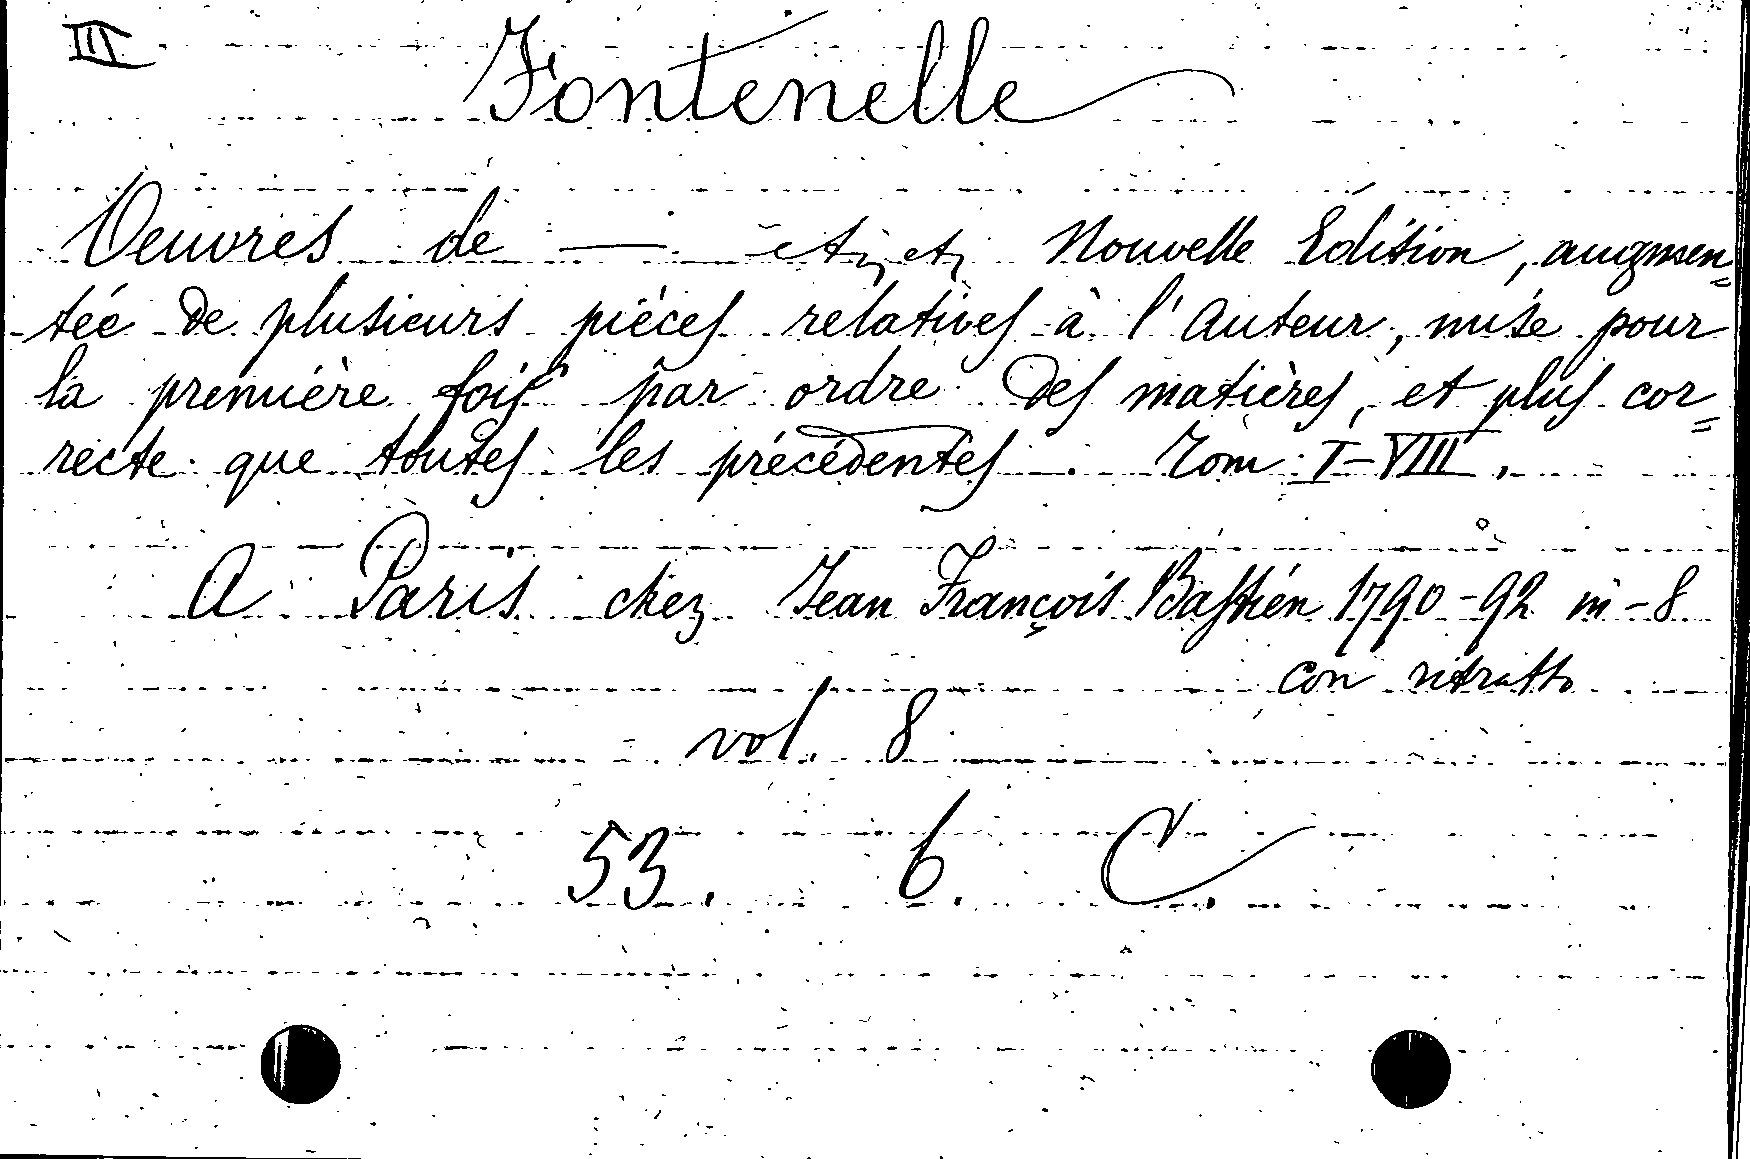 III
Fontenelle
Oeuvres de — Nouvelle Edition, augmen=
tée de plusieurs pièces relatives à l'Auteur, mise pour
la première fois par ordre des matières, et plus cor=
recte que toutes les précédentes. Tom. I-VIII.
A Paris chez Jean François Bastien 1790-92 in-8°
con ritratto
vol. 8
53. 6. C.